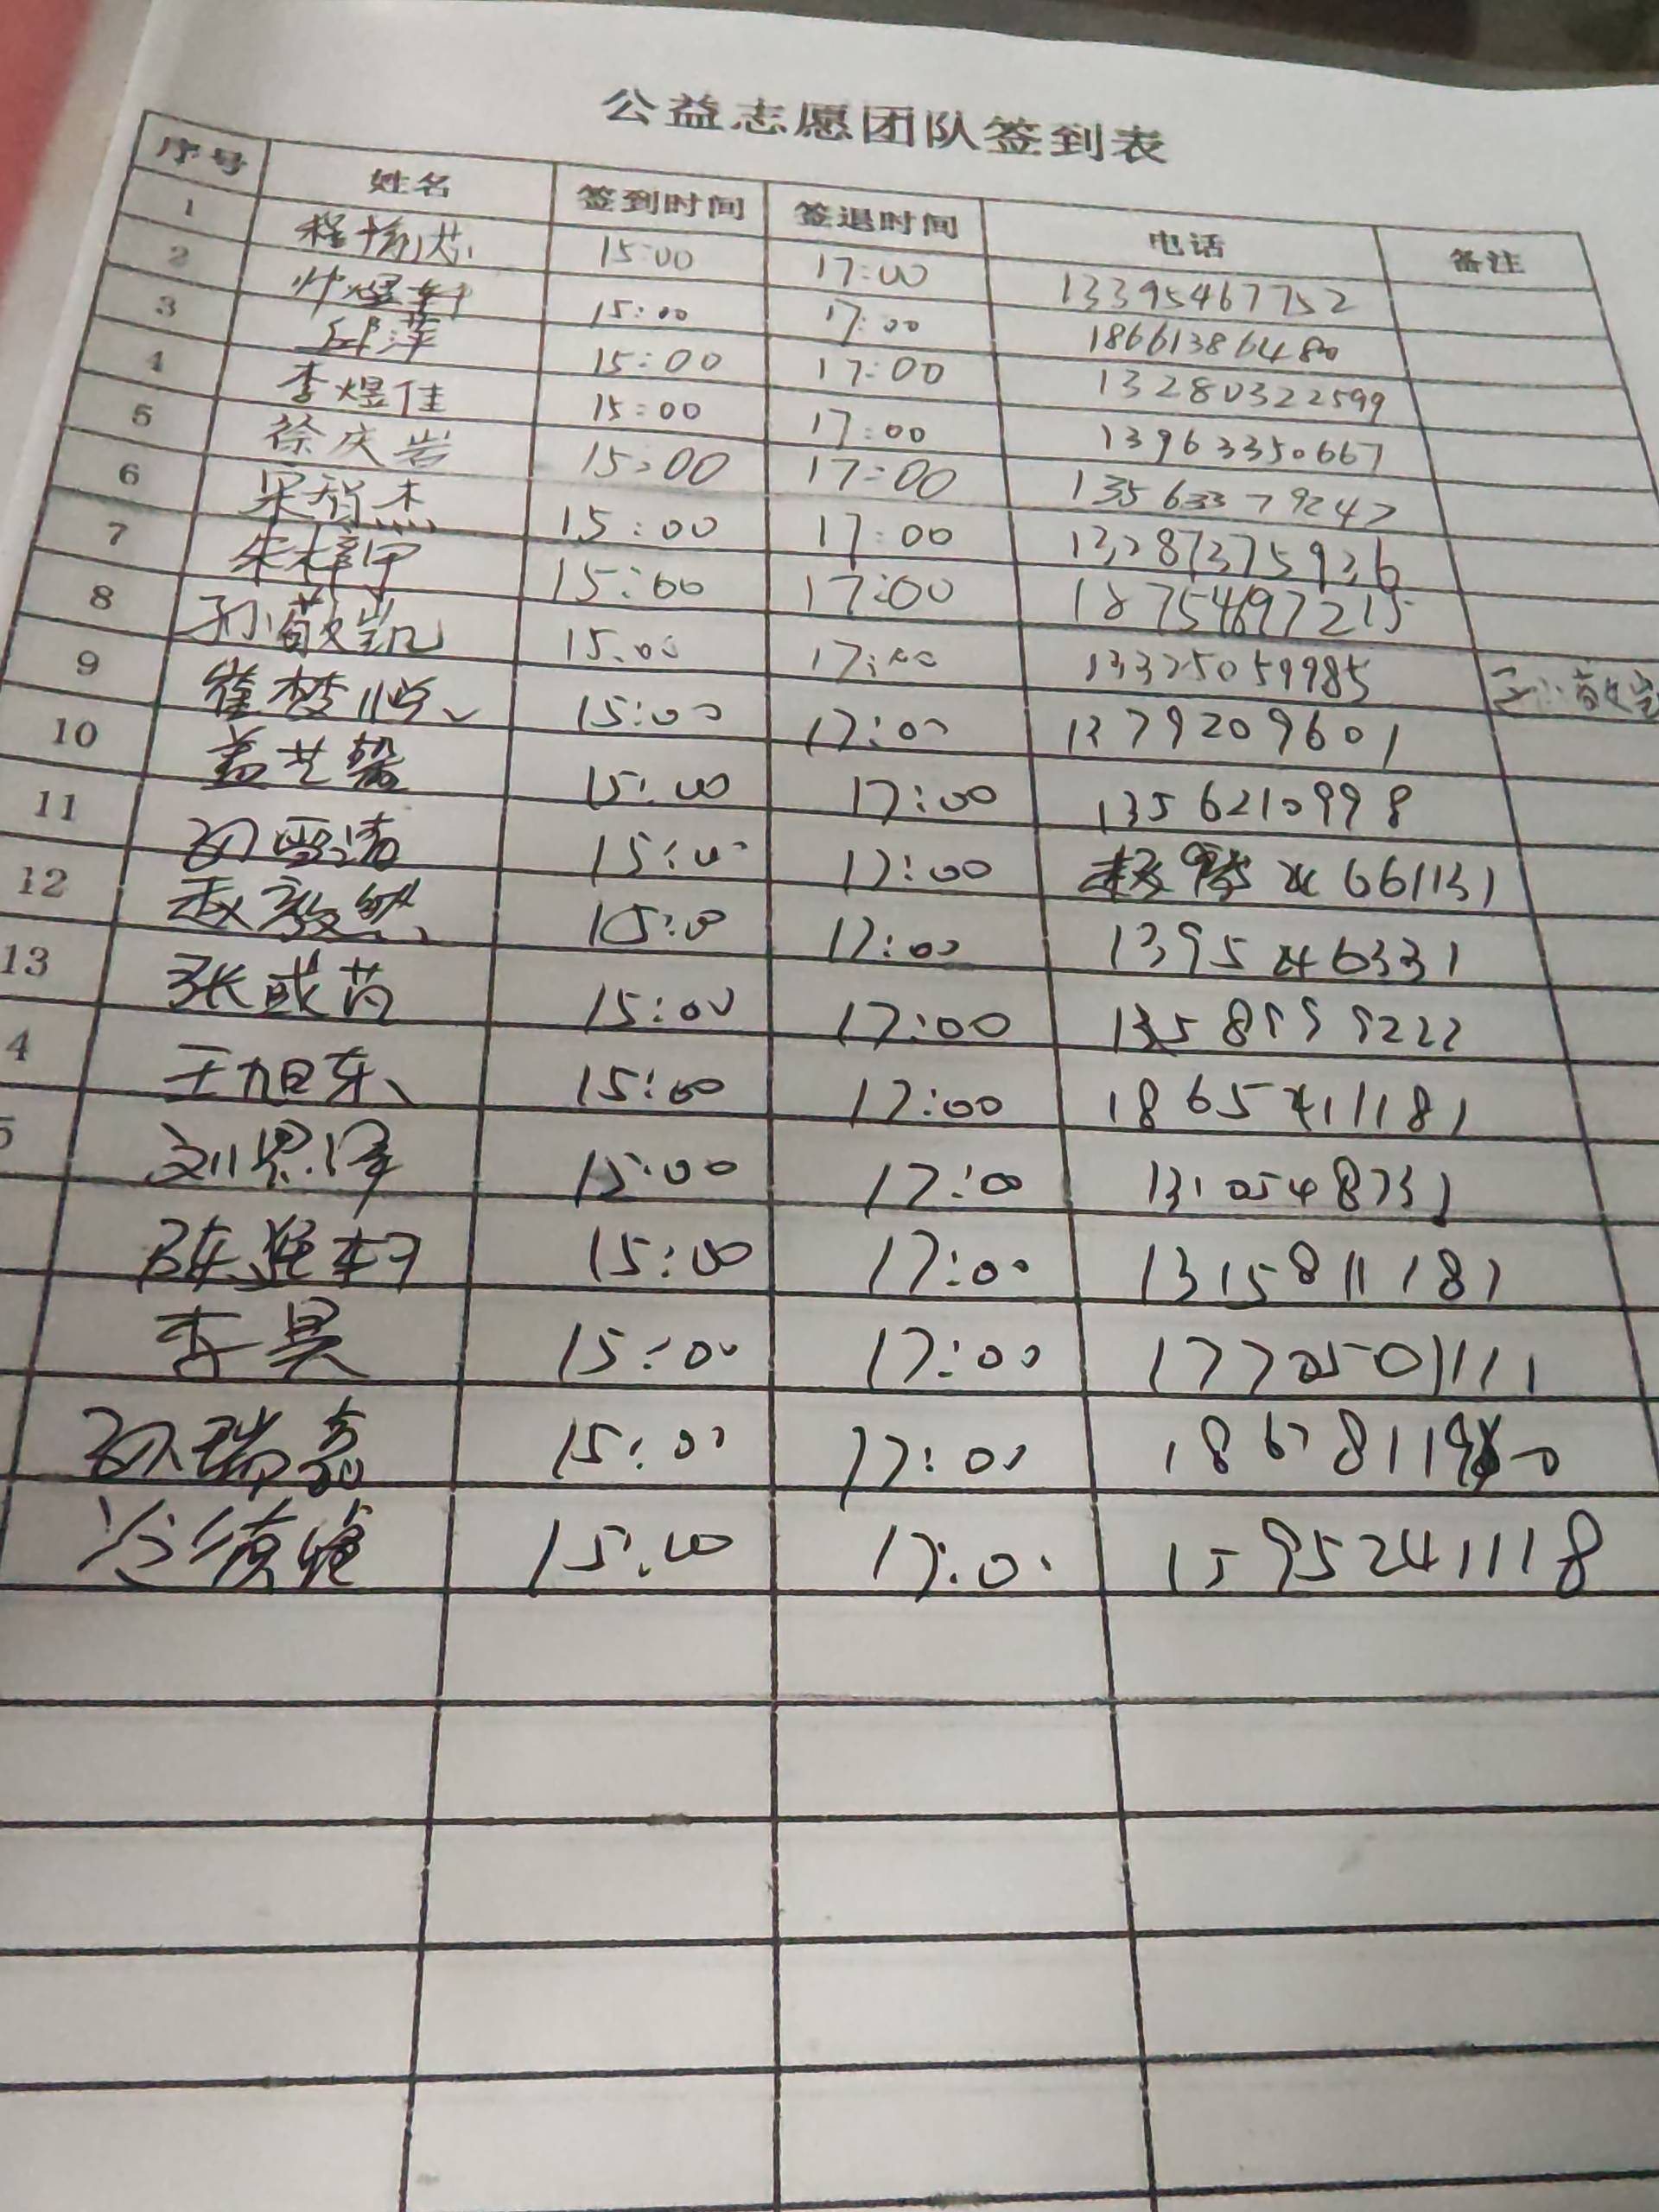 公益志愿团队签到表
序号 姓名 签到时间 签退时间 电话 备注
1 程杨芯 15:00 17:00 13395467752
2 帅煜轩 15:00 17:00 18661386480
3 邱萍 15:00 17:00 13280322599
4 李煜佳 15:00 17:00 13963350667
5 徐庆岩 15:00 17:00 13563379247
6 宋智杰 15:00 17:00 13287375926
7 朱梓甲 15:00 17:00 18754697215
8 孙敬凯 15:00 17:00 13325059985 孙敬凯
9 崔梦悦 15:00 17:00 1379209601
10 盖芝馨 15:00 17:00 1356210998
11 孙雪涛 15:00 17:00 661131
12 赵毅然 15:0 17:00 1395246331
13 张成芮 15:00 17:00 1358999222
4 王旭东 15:00 17:00 1865411181
5 刘思泽 15:00 17:00 1310548731
陈煜轩 15:00 17:00 1315811181
李昊 15:00 17:00 17705501111
孙瑞嘉 15:00 17:00
冷德 15:00 17:00 15952411118